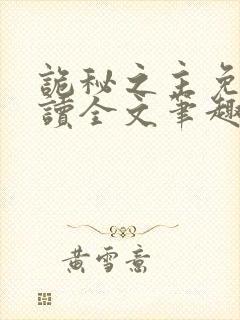 詭秘之主免
讀全文筆趣
黃雪意